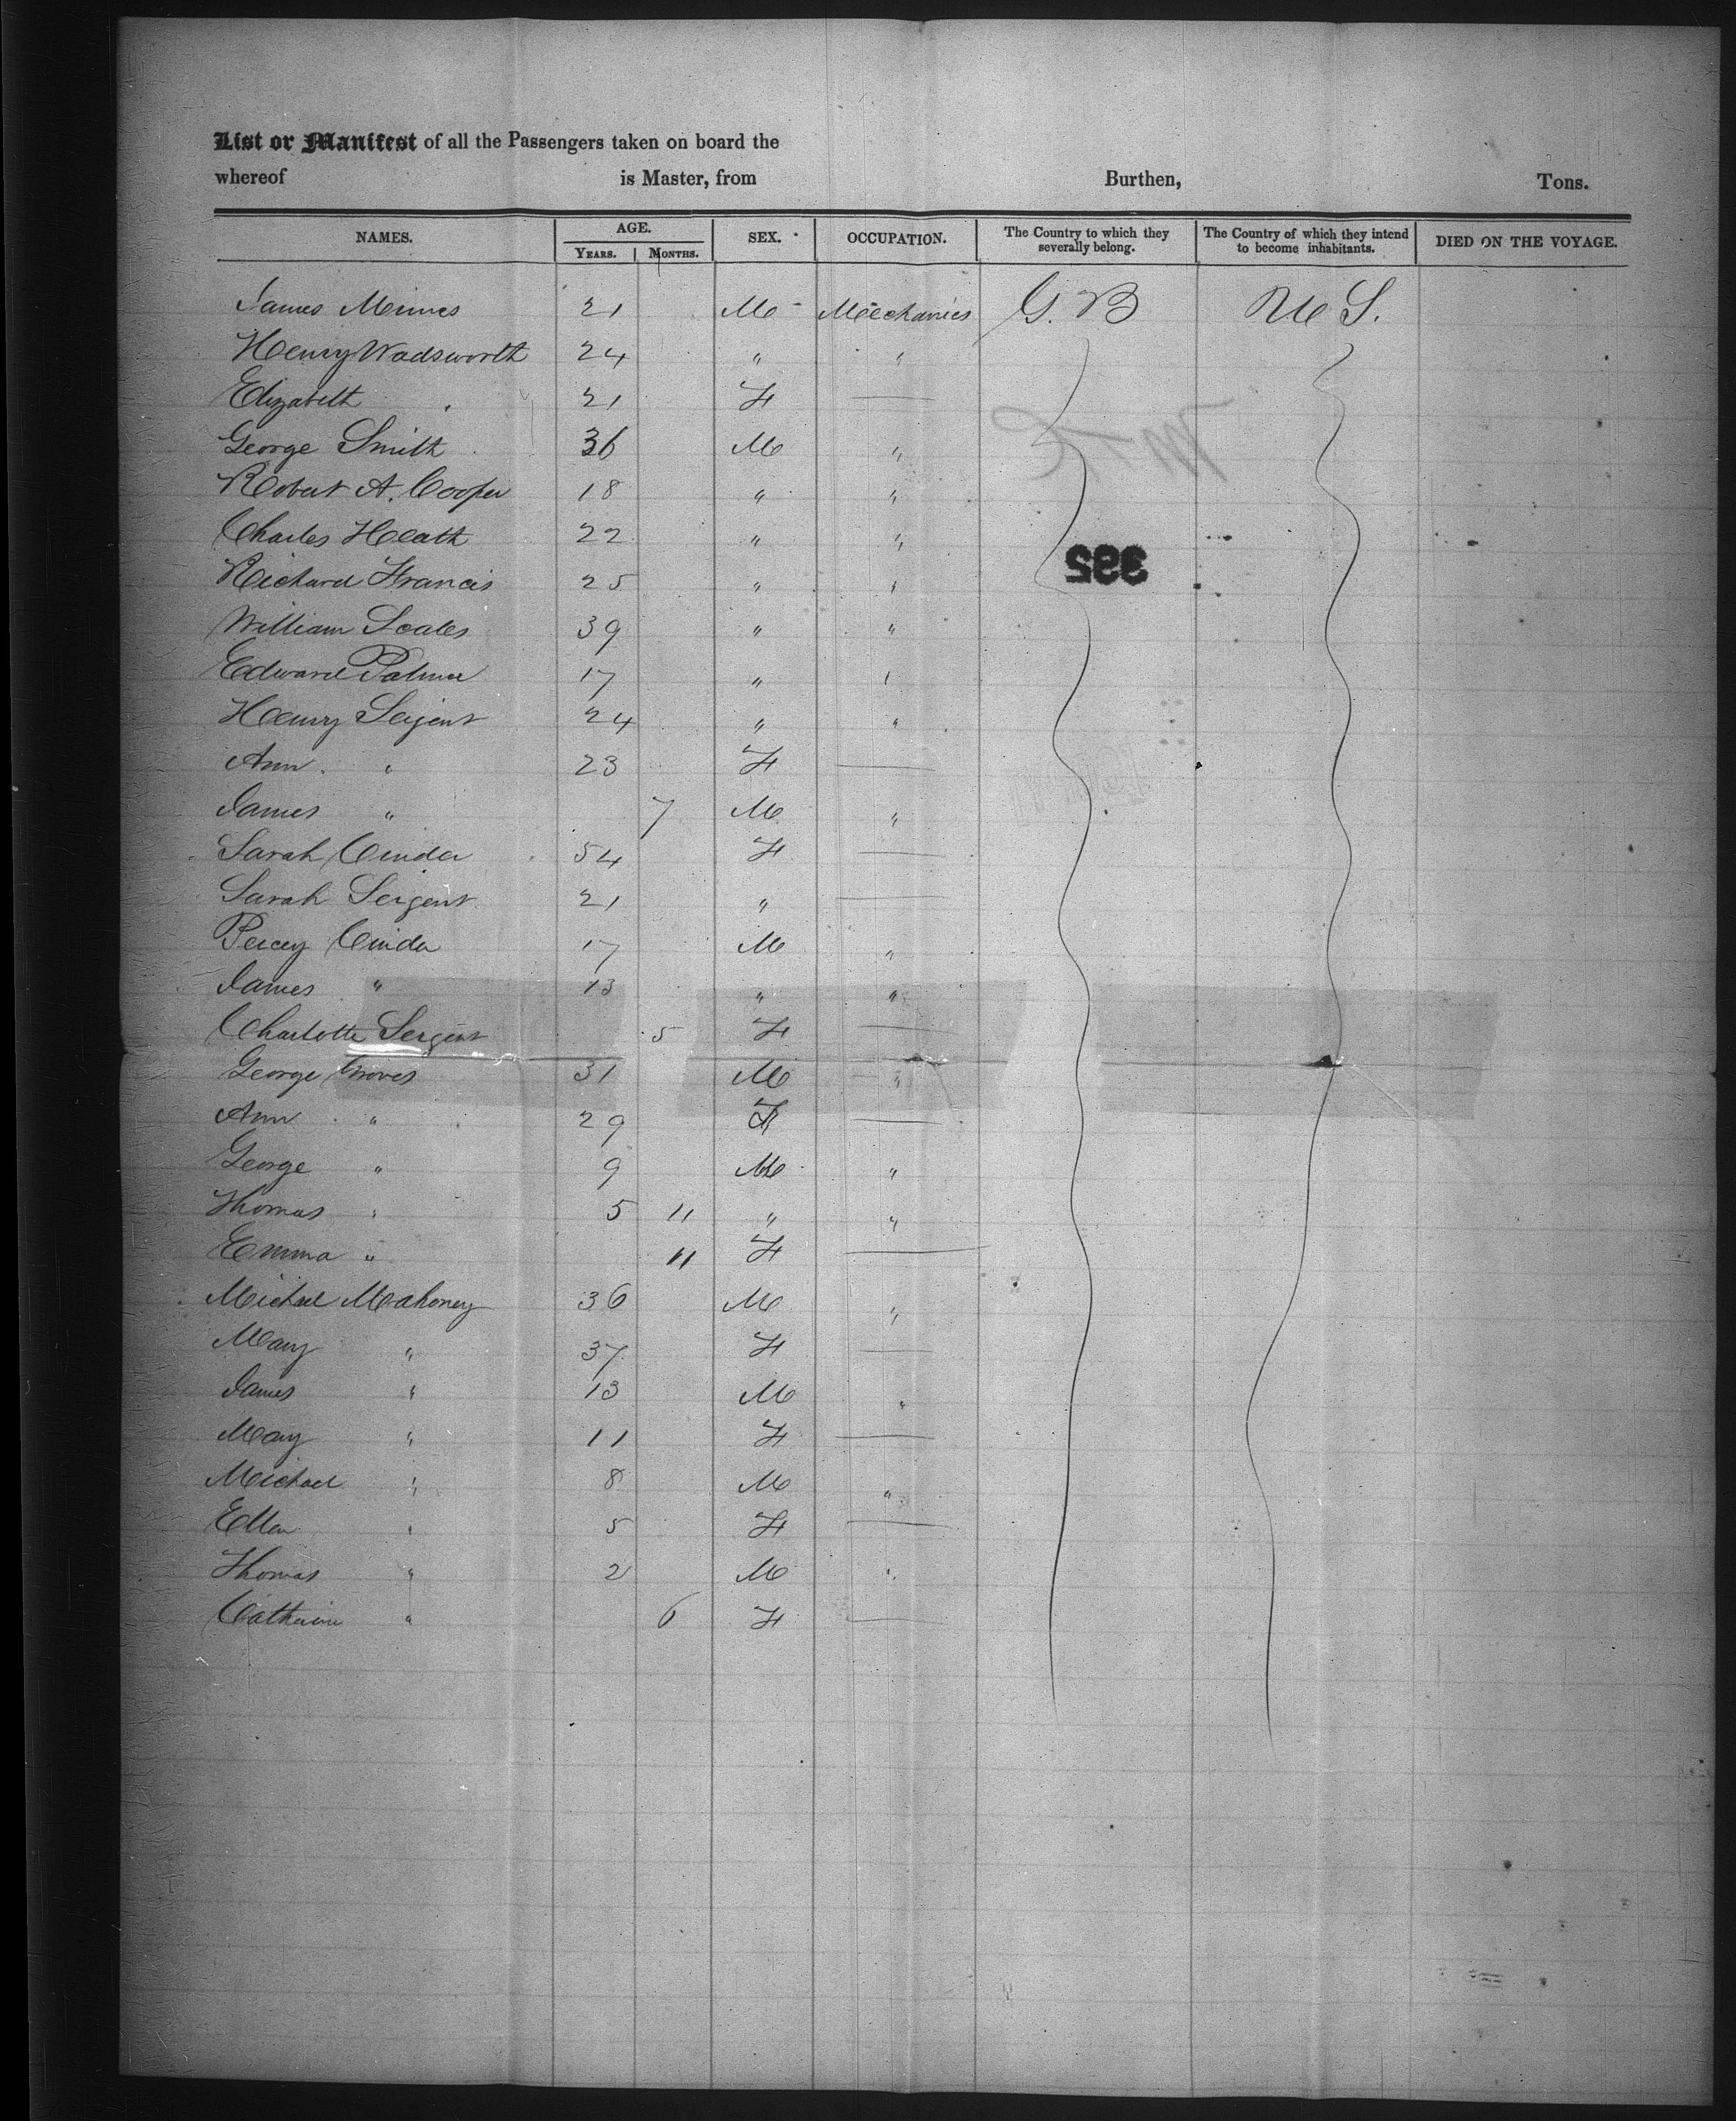 List or Manifest of all the Passengers taken on board the
whereof is Master, from Burthen, Tons.
NAMES. AGE. SEX. OCCUPATION. The Country to which they severally belong. The Country of which they intend to become inhabitants. DIED ON THE VOYAGE.
YEARS. MONTHS.
James Minnes 21 M Mechanics G. B U S.
Henry Wadsworth 24 " "
Elizabeth " 21 F —
George Smith 36 M "
Robert A. Cooper 18 " "
Charles Heath 22 " "
Richard Francis 25 " "
William Scales 39 " "
Edward Palmer 17 " "
Henry Serjent 24 " "
Ann " 23 F —
James " 7 M "
Sarah Cinder 54 F —
Sarah Serjent 21 " —
Percy Cinder 17 M "
James " 13 " "
Charlotte Serjent 5 F —
George Groves 31 M "
Ann " 29 F —
George " 9 M "
Thomas " 5 11 " "
Emma " 11 F —
Michael Mahoney 36 M "
Mary " 37 F —
James " 13 M "
Mary " 11 F —
Michael " 8 M "
Ellen " 5 F —
Thomas " 2 M "
Catherine " 6 F —
395